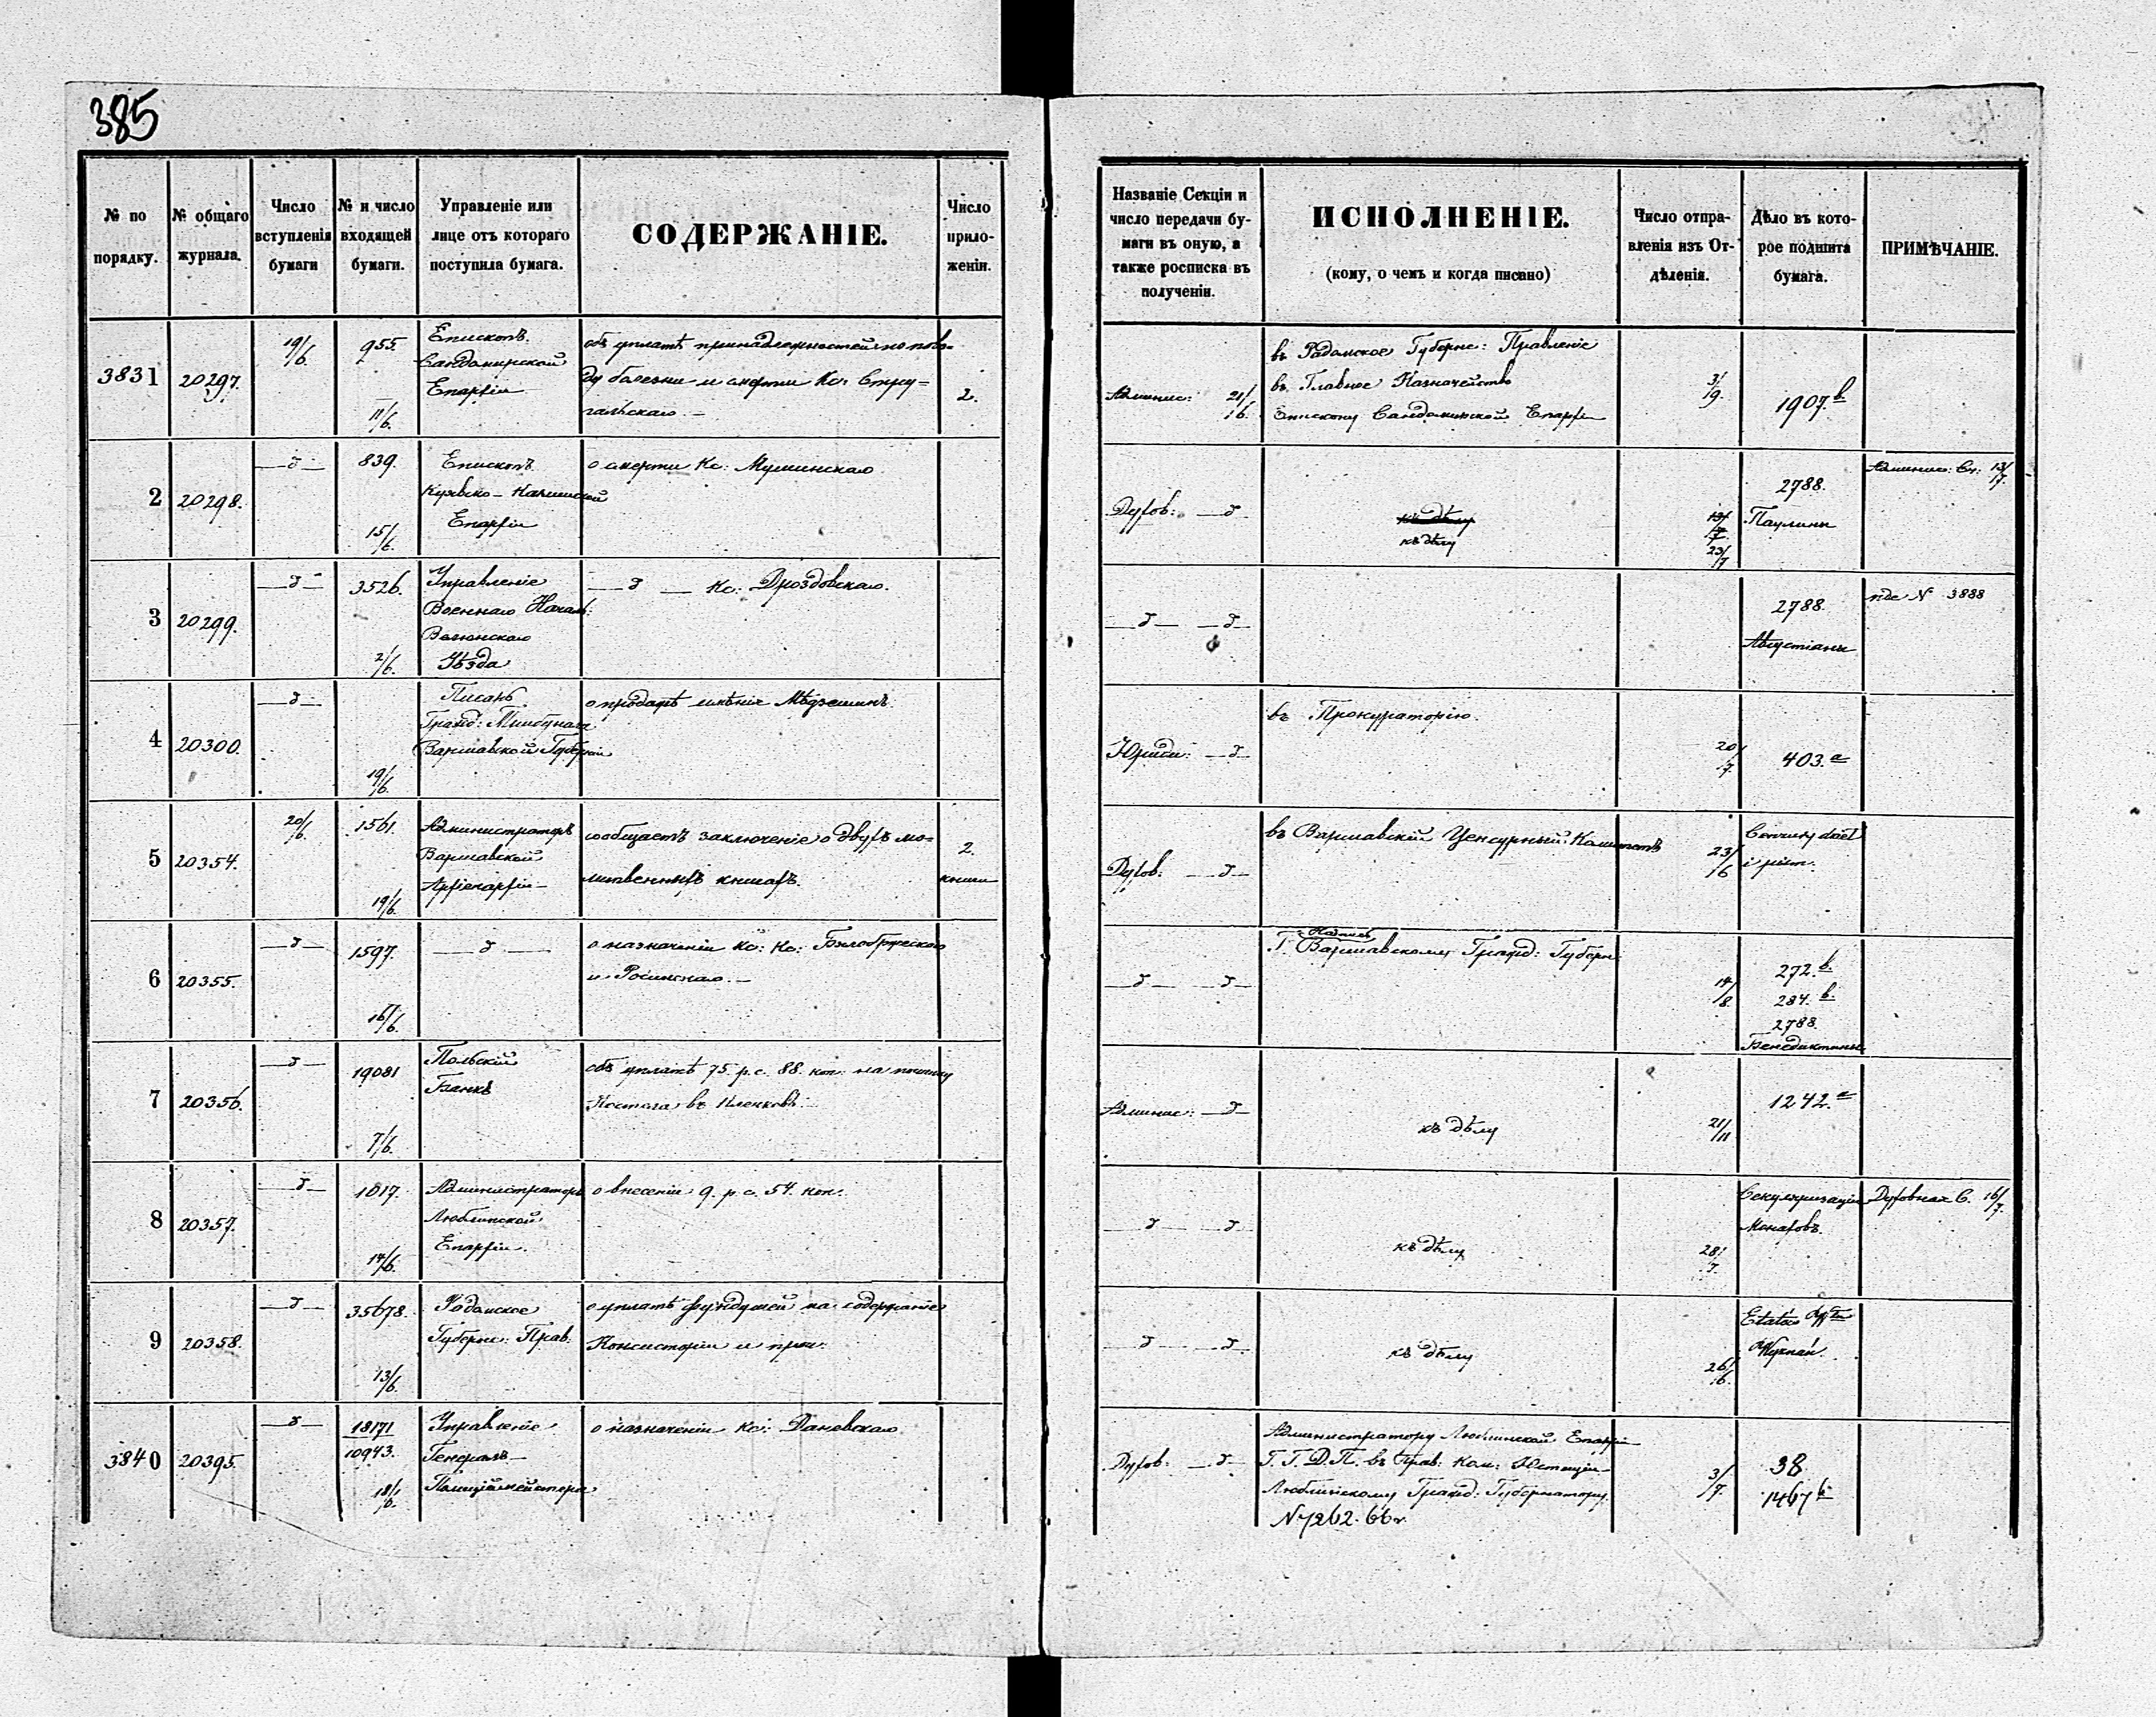 385
№ по порядку.
№ общаго журнала.
Число вступленія бумаги
№ и число входящей бумаги.
Управленіе или лице отъ котораго поступила бумага.
СОДЕРЖАНІЕ.
Число приложеніи.
Названіе Секціи и число передачи бумаги въ оную, а также росписка въ полученіи.
ИСПОЛНЕНІЕ.
(кому, о чемъ и когда писано)
Число отправленія изъ Отдѣленія.
Дѣло въ которое подшита бумага.
ПРИМѢЧАНІЕ.
3831
20297.
19/6.
955.
11/6.
Епископъ
Сандомирской
Епархіи
объ уплатѣ принадлежностей по пово-
ду болезни и смерти Кс:
2.
Админис: 21/16.
въ Радомское Губерн: Правленіе
въ Главное Казначейство
Епископу Сандомирской Епархіи
3/9.
1907. b
2
20298.
—д—
839.
15/6.
Епископъ
Куявско-Калишской
Епархіи
о смерти Кс: Мушинскаго
Духов: —д
къ дѣлу
къ дѣлу
13/7.
23/7
2788.
Паулины
Админис: Сп: 13/7
3
20299.
—д—
3526.
2/6.
Управленіе
Военнаго Началь:
Велюнскаго
Уѣзда
—д— Кс: Дроздовскаго.
—д— —д—
2788.
Августіаны
№ 3888
4
20300.
—д—
19/6.
Писарь
Гражд: Трибунала
Варшавской Губерніи
о продажѣ имѣнія
Юриди: —д—
въ Прокураторію.
20/7.
403. a
5
20354.
20/6.
1561.
19/6.
Администраторъ
Варшавской
Архіепархіи—
сообщаетъ заключеніе о двухъ мо-
литвенныхъ книгахъ.
2.
книги
Духов: —д—
въ Варшавскій Цензурный Комитетъ
23/16
Cenzury dzieł
i pism.
6
20355.
—д—
1597.
16/6.
—д—
о назначеніи Кс: Кс: Бялобржескаго
и Росинскаго.—
—д— —д—
Надпись
Г. Варшавскому Гражд: Губерн
14/8.
272. b.
284. b.
2788.
Бенедиктины
7
20356.
—д—
19081
7/6.
Польскій
Банкъ
объ уплатѣ 75. р. с. 88. коп: на починку
Костела въ
Админис: —д—
къ дѣлу
21/11
1242. a
8
20357.
—д—
1617.
14/6.
Администраторъ
Люблинской
Епархіи.
о внесеніи 9. р. с. 54. коп:
—д— —д
къ дѣлу
28/7.
Секуляризаціи
Монаховъ.
Духовная С. 16/7.
9
20358.
—д—
35678.
13/6.
Радомское
Губерн: Прав:
о уплатѣ фундушей на содержаніе
Консисторіи и проч.
—д— —д.
къ дѣлу
26/6.
Etatów
3840
20395.
—д—
18171
10943.
18/6.
Управленіе
Генералъ—
Полиціймейстера
о назначеніи Кс: Даневскаго
Духов: —д—
Администратору Люблинской Епархіи
Г. Г. Д. П. въ Прав: Ком: Юстиціи—
Люблинскому Гражд: Губернатору.
№ 7262. 66 г.
3/7.
38
1467 b